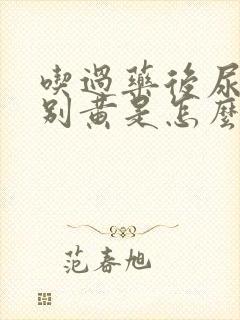 喫過藥後尿
別黃是怎麼
范春旭